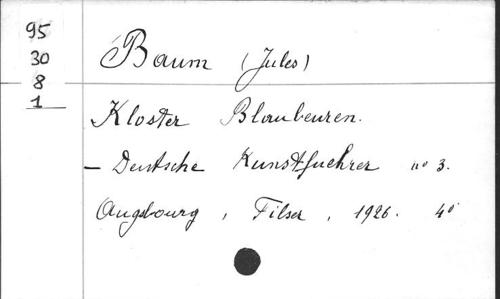 95
30
8
1
Baum (Jules)
Kloster Blaubeuren.
- Deutsche Kunstfuehrer n° 3.
Augsbourg, Filser, 1926. 4°